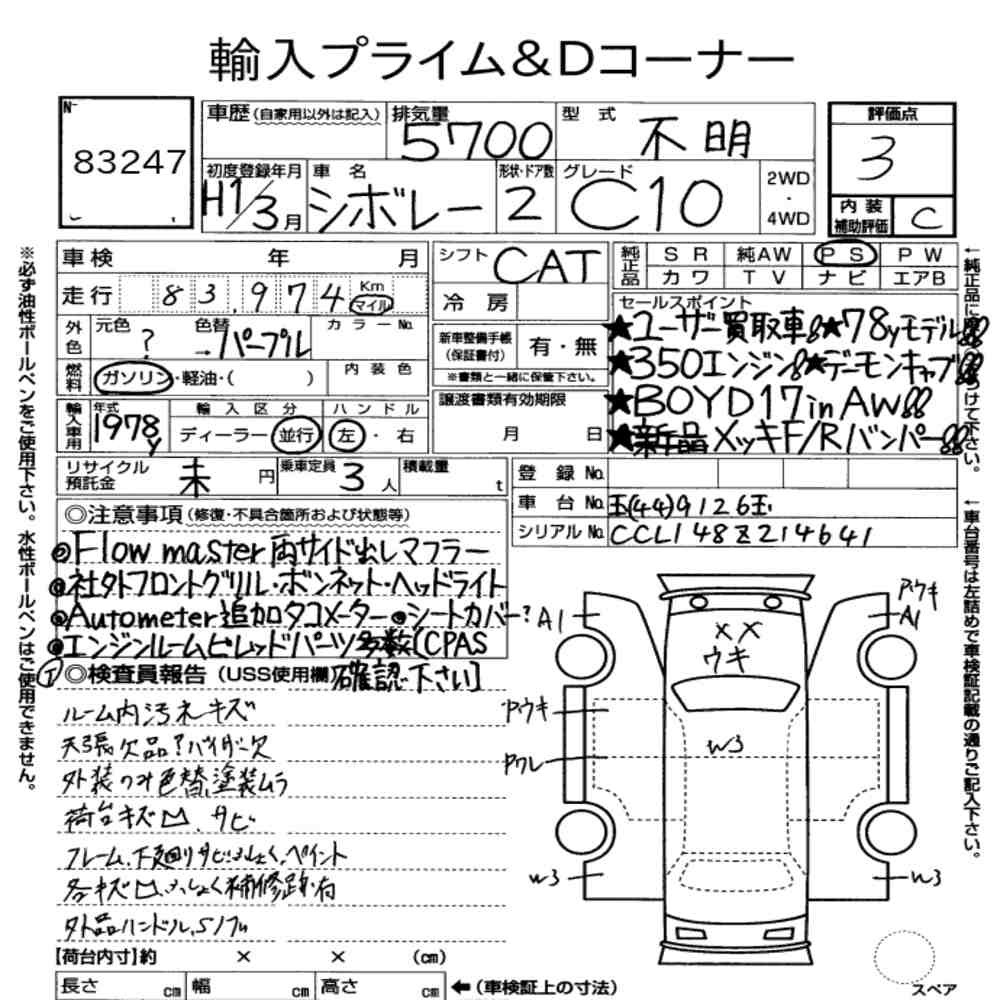 輸入プライム&Dコーナー
N-
83247
車歴(自家用以外は記入)
排気量
5700
型 式
不明
評価点
3
初度登録年月
H1/3月
車 名
シボレー
形状・ドア数
2
グレード
C10
2WD
・
4WD
内 装
補助評価
C
車検 年 月
シフト
CAT
純正品
SR 純AW PS PW
カワ TV ナビ エアB
走行 83,974 Km
マイル
冷 房
セールスポイント
★ユーザー買取車!!★78yモデル!!
★350エンジン!!★デーモンキャブ!!
★BOYD17in AW!!
★新品メッキF/Rバンパー!!
外色
元色
?
色替
→パープル
カラーNo.
新車整備手帳
(保証書付)
有・無
※書類と一緒に保管下さい。
燃料
ガソリン・軽油・( )
内 装 色
譲渡書類有効期限
月 日
輸入車用
年式
1978y
輸 入 区 分
ディーラー 並行
ハ ン ド ル
左・右
リサイクル
預託金
未 円
乗車定員
3人
積載量
t
登 録 No.
車 台 No.
玉(44)9126玉
シリアル No.
CCL148Z214641
◎注意事項(修復・不具合箇所および状態等)
◎Flowmaster両サイド出しマフラー
◎社外フロントグリル・ボンネット・ヘッドライト
◎Autometer追加タコメーター◎シートカバー?
◎エンジンルームビレッドパーツ多数(CPAS
確認下さい]
◎検査員報告(USS使用欄)
ルーム内汚れキズ
天張欠品?バイザー欠
外装のみ色替,塗装ムラ
荷台キズ凹,サビ
フレーム,下廻りサビ
ふしょく,ペイント
各キズ凹,ふしょく補修跡有
外品ハンドル,S/フル
【荷台内寸】約 × × (cm)
長さ cm
幅 cm
高さ cm
←(車検証上の寸法)
A1
アウキ
A1
××
ウキ
アウキ
アワレ
W3
W3
W3
スペア
※必ず油性ボールペンをご使用下さい。水性ボールペンはご使用できません。
←車台番号は左詰めで車検証記載の通りご記入下さい。